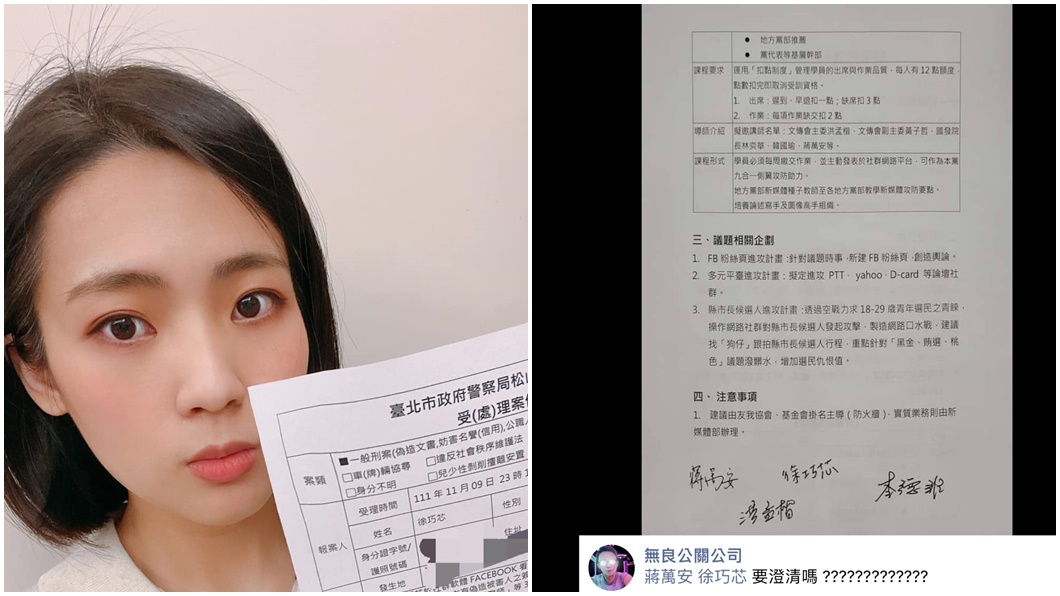 臺北市政府警察局松山
受(處)理案件
案類
■一般刑案(偽造文書,妨害名譽(信用),公職人
□車(牌)輛協尋
□違反社會秩序維護法
□身分不明
□兒少性剝削擅離安置
受理時間
111 年 11 月 09 日 23 時 1
報案人
姓名
徐巧芯
性別
身分證字號/
護照號碼
住址
發生地
軟體 FACEBOOK 看
● 地方黨部推薦
● 黨代表等基層幹部
課程要求
運用「扣點制度」管理學員的出席與作業品質，每人有 12 點額度，
點數扣完即取消受訓資格。
1. 出席：遲到、早退扣一點；缺席扣 3 點
2. 作業：每項作業缺交扣 2 點
導師介紹
擬邀講師名單：文傳會主委洪孟楷、文傳會副主委黃子哲、國發院
長林奕華、韓國瑜、蔣萬安等。
課程形式
學員必須每周繳交作業，並主動發表於社群網路平台，可作為本黨
九合一側翼攻防助力。
地方黨部新媒體種子教師至各地方黨部教學新媒體攻防要點。
培養論述寫手及圖像高手組織。
三、議題相關企劃
1. FB 粉絲頁進攻計畫：針對議題時事，新建 FB 粉絲頁，創造輿論。
2. 多元平臺進攻計畫：擬定進攻 PTT、yahoo、D-card 等論壇社
群。
3. 縣市長候選人進攻計畫：透過空戰力求 18-29 歲青年選民之青睞，
操作網路社群對縣市長候選人發起攻擊，製造網路口水戰，建議
找「狗仔」跟拍縣市長候選人行程，重點針對「黑金、賄選、桃
色」議題潑髒水，增加選民仇恨值。
四、 注意事項
1. 建議由友我協會、基金會掛名主導（防火牆），實質業務則由新
媒體部辦理。
蔣萬安 徐巧芯 李德維
洪孟楷
無良公關公司
蔣萬安 徐巧芯 要澄清嗎 ?????????????